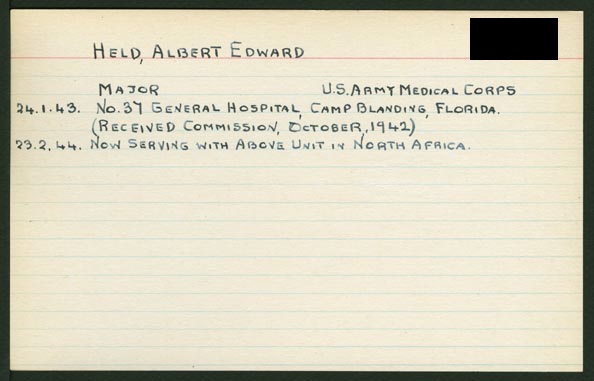 HELD, ALBERT EDWARD
MAJOR U.S. ARMY MEDICAL CORPS
24.1.43. NO.37 GENERAL HOSPITAL, CAMP BLANDING, FLORIDA.
(RECEIVED COMMISSION, OCTOBER, 1942)
23.2.44. NOW SERVING WITH ABOVE UNIT IN NORTH AFRICA.